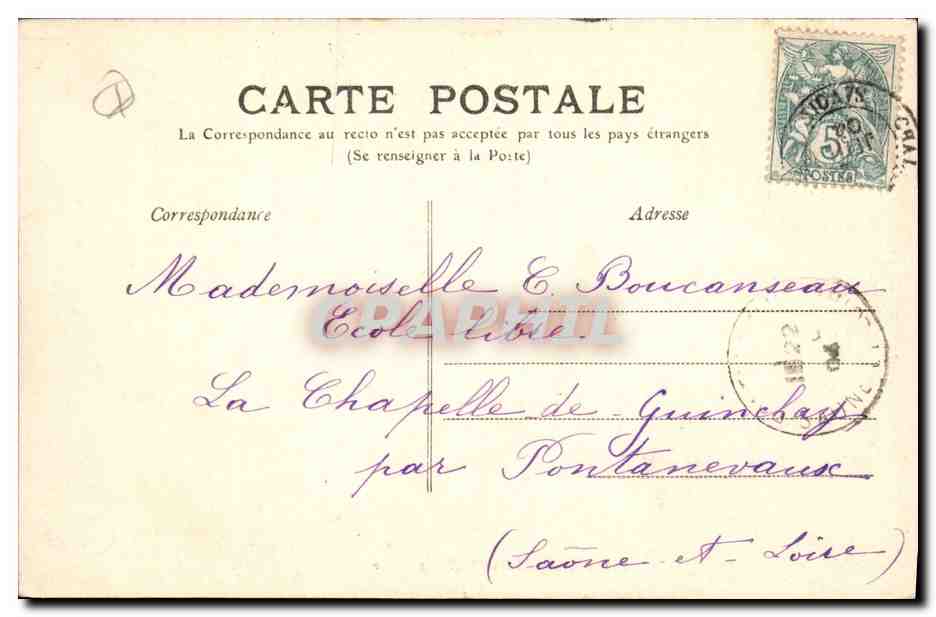 CARTE POSTALE
La Correspondance au recto n'est pas acceptée par tous les pays étrangers
(Se renseigner à la Poste)
Correspondance
Adresse
5
POSTES
Mademoiselle C. Boucanseau
CPAPHIL
Ecole libre.
La Chapelle de Guinchay
par Pontanevaux
(Saône et Loire)